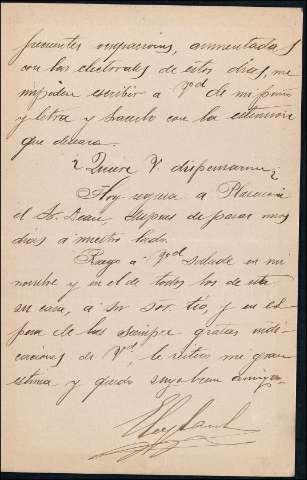 frecuentes ocupaciones, aumentadas
con las electorales de estos dias, me
impiden escribir a Vd de mi puño
y letra y hacerlo con la extensión
que deseara.
¿Quiere V. dispensarme?
Hoy regresa a Plasencia
el Sr. Dean, despues de pasar unos
dias a nuestro lado.
Ruego a Vd salude en mi
nombre y en el de todos los de esta
su casa, a su Sor. tío, y en es-
pera de las siempre gratas indi-
caciones de Vd, le reitera me gran
estima y quedo suyo buen amigo.